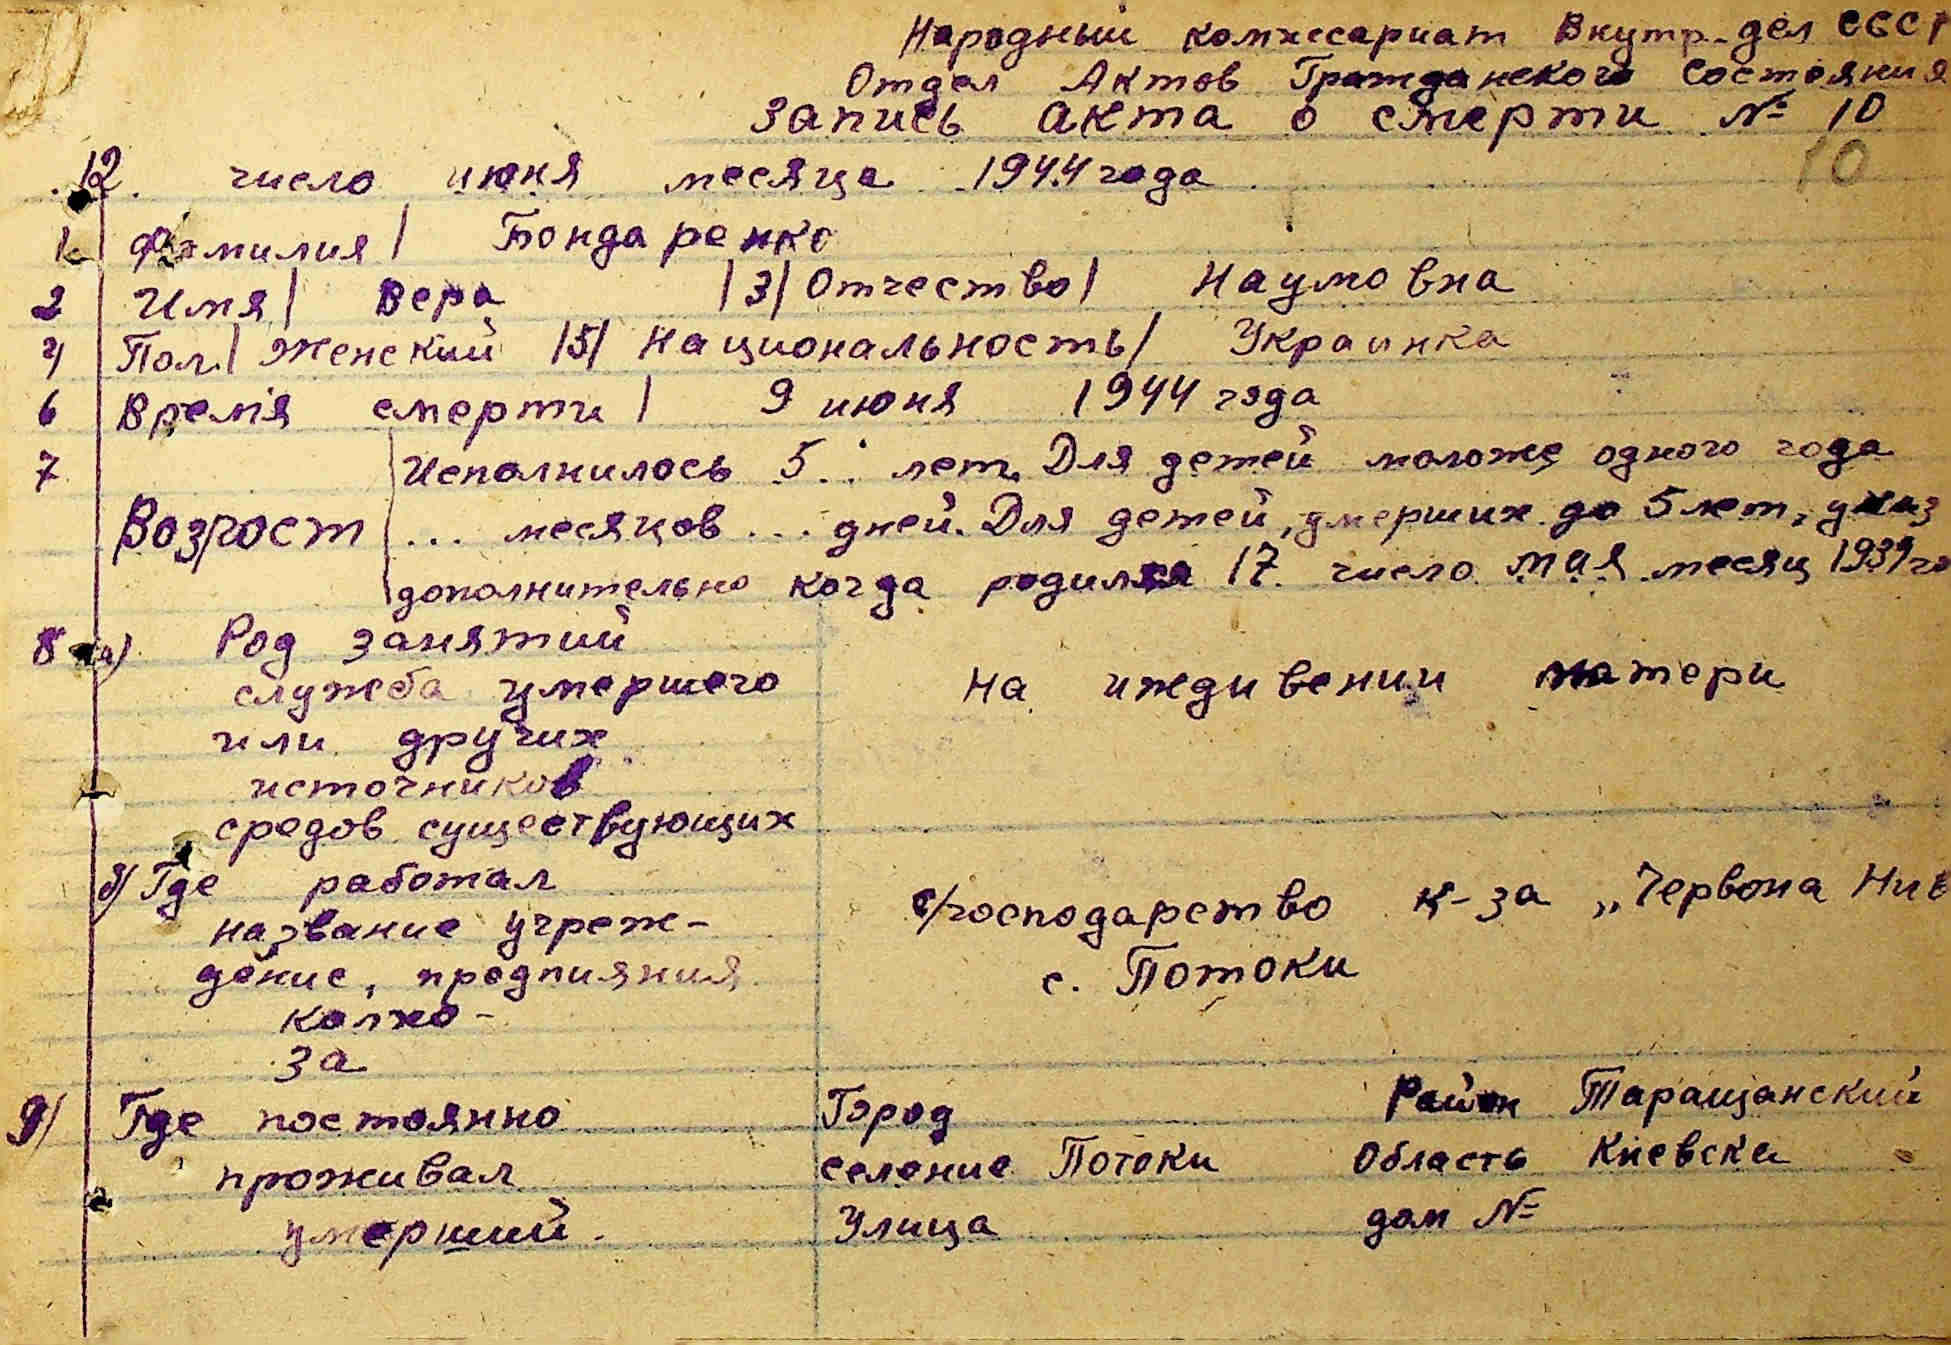 Народный комиссариат Внутр-дел СССР
Отдел Актов Гражданского Состояния
Запись акта о смерти № 10
10
12. число июня месяца 1944 года
1. Фамилия| Бондаренко
2 Имя| Вера |3| Отчество| Наумовна
4 Пол| Женский |5| Национальность| Украинка
6 Время смерти| 9 июня 1944 года
7 Исполнилось 5.. лет. Для детей моложе одного года
Возраст ... месяцов ... дней. Для детей, умерших до 5 лет, указ
дополнительно когда родился 17. число мая месяц 1939 го
8 а) Род занятий
служба умершего На иждивении матери
или других
источников
средов существующих
б) Где работал
название учреж- с/господарство к-за „Червона Нив
дение, предпияния с. Потоки
колхо-
за
9) Где постоянно Город Район Таращанский
проживал селение Потоки Область Киевска
умерший. Улица дом №